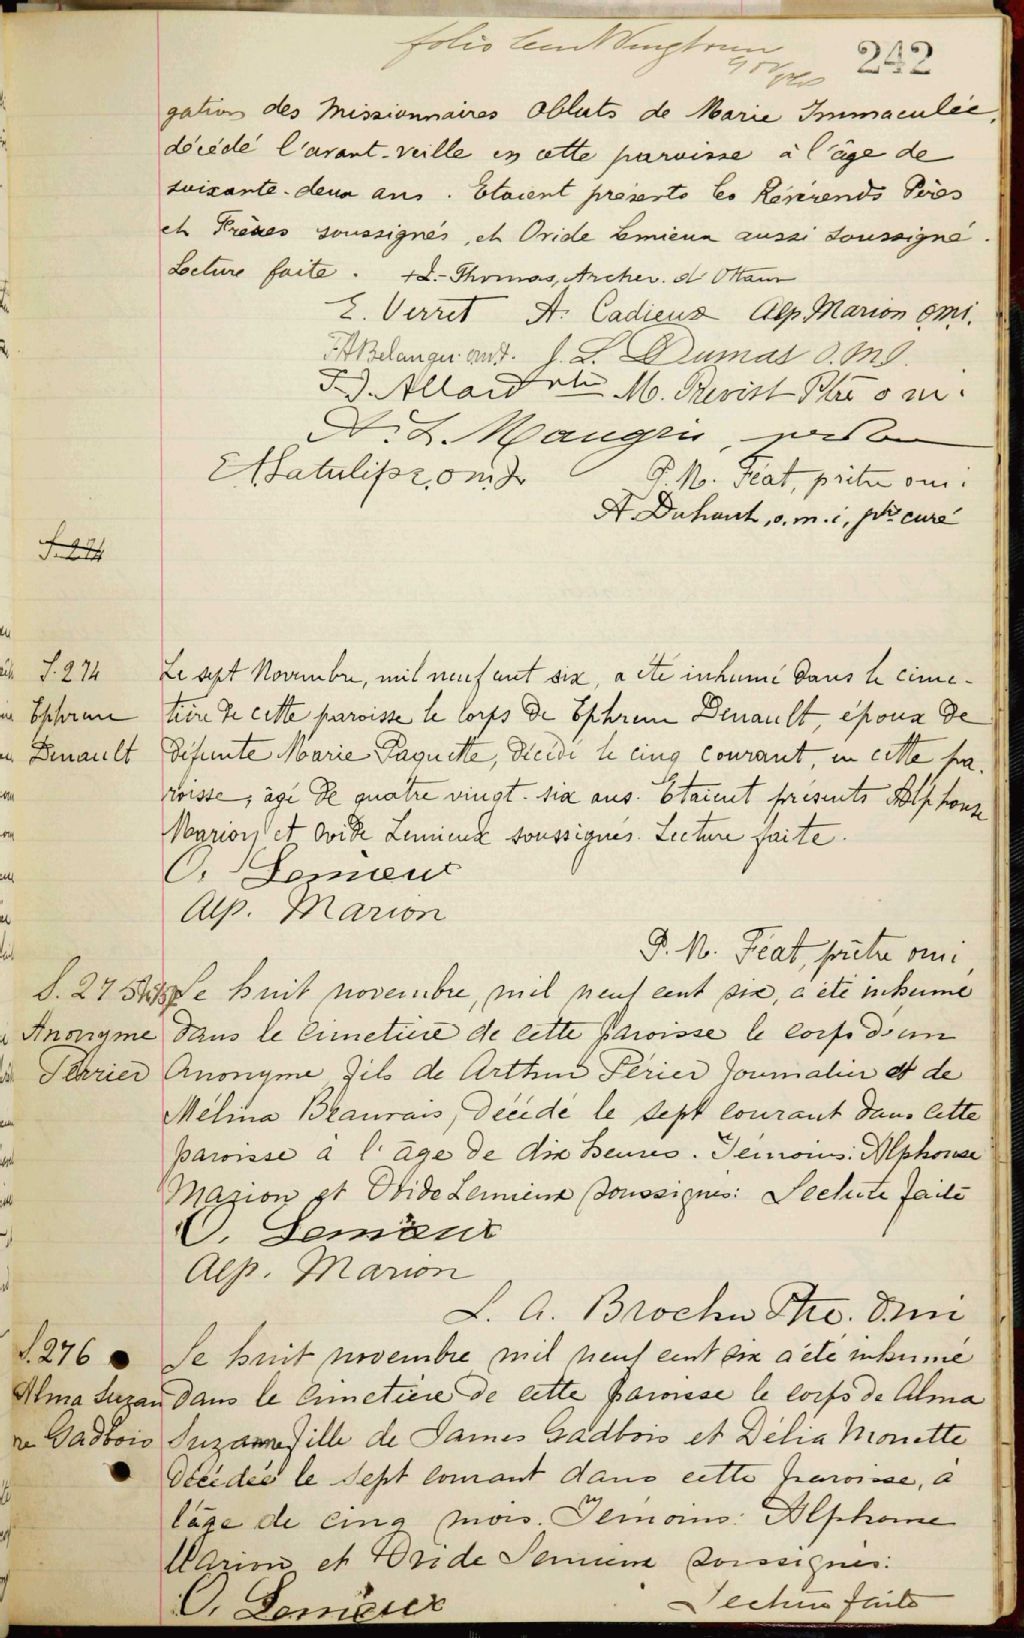 242
gation des Missionnaires Oblats de Marie Immaculée,
décédé l'avant-veille en cette paroisse à l'âge de
soixante-deux ans. Etaient présents les Révérends Pères
et Frères soussignés, et Ovide Lemieux aussi soussigné.
Lecture faite. + J.-Thomas, Archev. d'Ottawa
E. Verret A. Cadieux Alp. Marion o.m.i.
F. A. Belanger o.m.i. J. L. Dumas O.M.I.
F. J. Allard ptre M. Prevost Ptre o m i
A. L. Mangin,
E. A. Latulipe, o.m.i.
P. M. Féat, prêtre omi
A. Duhaut, o.m.i, ptre curé
S. 274
S. 274
Ephrem
Denault
Le sept Novembre, mil neuf cent six, a été inhumé dans le cime-
tière de cette paroisse le corps de Ephrem Denault, époux de
défunte Marie Paquette, décédé le cinq courant, en cette pa-
roisse, âgé de quatre vingt-six ans. Etaient présents Alphonse
Marion et Ovide Lemieux soussignés. Lecture faite.
O. Lemieux
Alp. Marion
P. M. Féat, prêtre omi
S. 275
Anonyme
Perrier
Le huit novembre, mil neuf cent six, a été inhumé
dans le cimetière de cette paroisse le corps d'un
Anonyme fils de Arthur Périer journalier et de
Mélina Beauvais, décédé le sept courant dans cette
paroisse à l'âge de dix heures. Témoins: Alphonse
Marion et Ovide Lemieux soussignés: Lecture faite
O. Lemieux
Alp. Marion
L. A. Brochu Ptre. O.m.i
S. 276
Alma Suzan
ne Gadbois
Le huit novembre mil neuf cent six a été inhumé
dans le cimetière de cette paroisse le corps de Alma
Suzanne fille de James Gadbois et Délia Monette
décédée le sept courant dans cette paroisse, à
l'âge de cinq mois. Témoins: Alphonse
Marion et Ovide Lemieux soussignés:
O. Lemieux Lecture faite